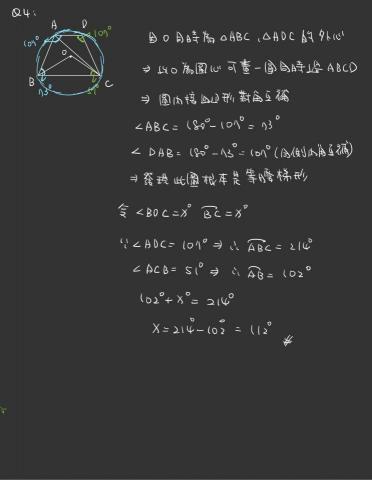 Q4:
A D
107° 107°
O
B C
73° 51°
因O同時為△ABC、△ADC的外心
⇒ 以O為圓心可畫一圓同時過ABCD
⇒ 圓內接四邊形對角互補
∠ABC = 180° - 107° = 73°
∠DAB = 180° - 73° = 107° (同側內角互補)
⇒ 發現此圖根本是等腰梯形
令 ∠BOC = x° BC = x°
∵ ∠ADC = 107° ⇒ ∴ ABC = 214°
∠ACB = 51° ⇒ ∴ AB = 102°
102° + x° = 214°
x = 214° - 102° = 112° #